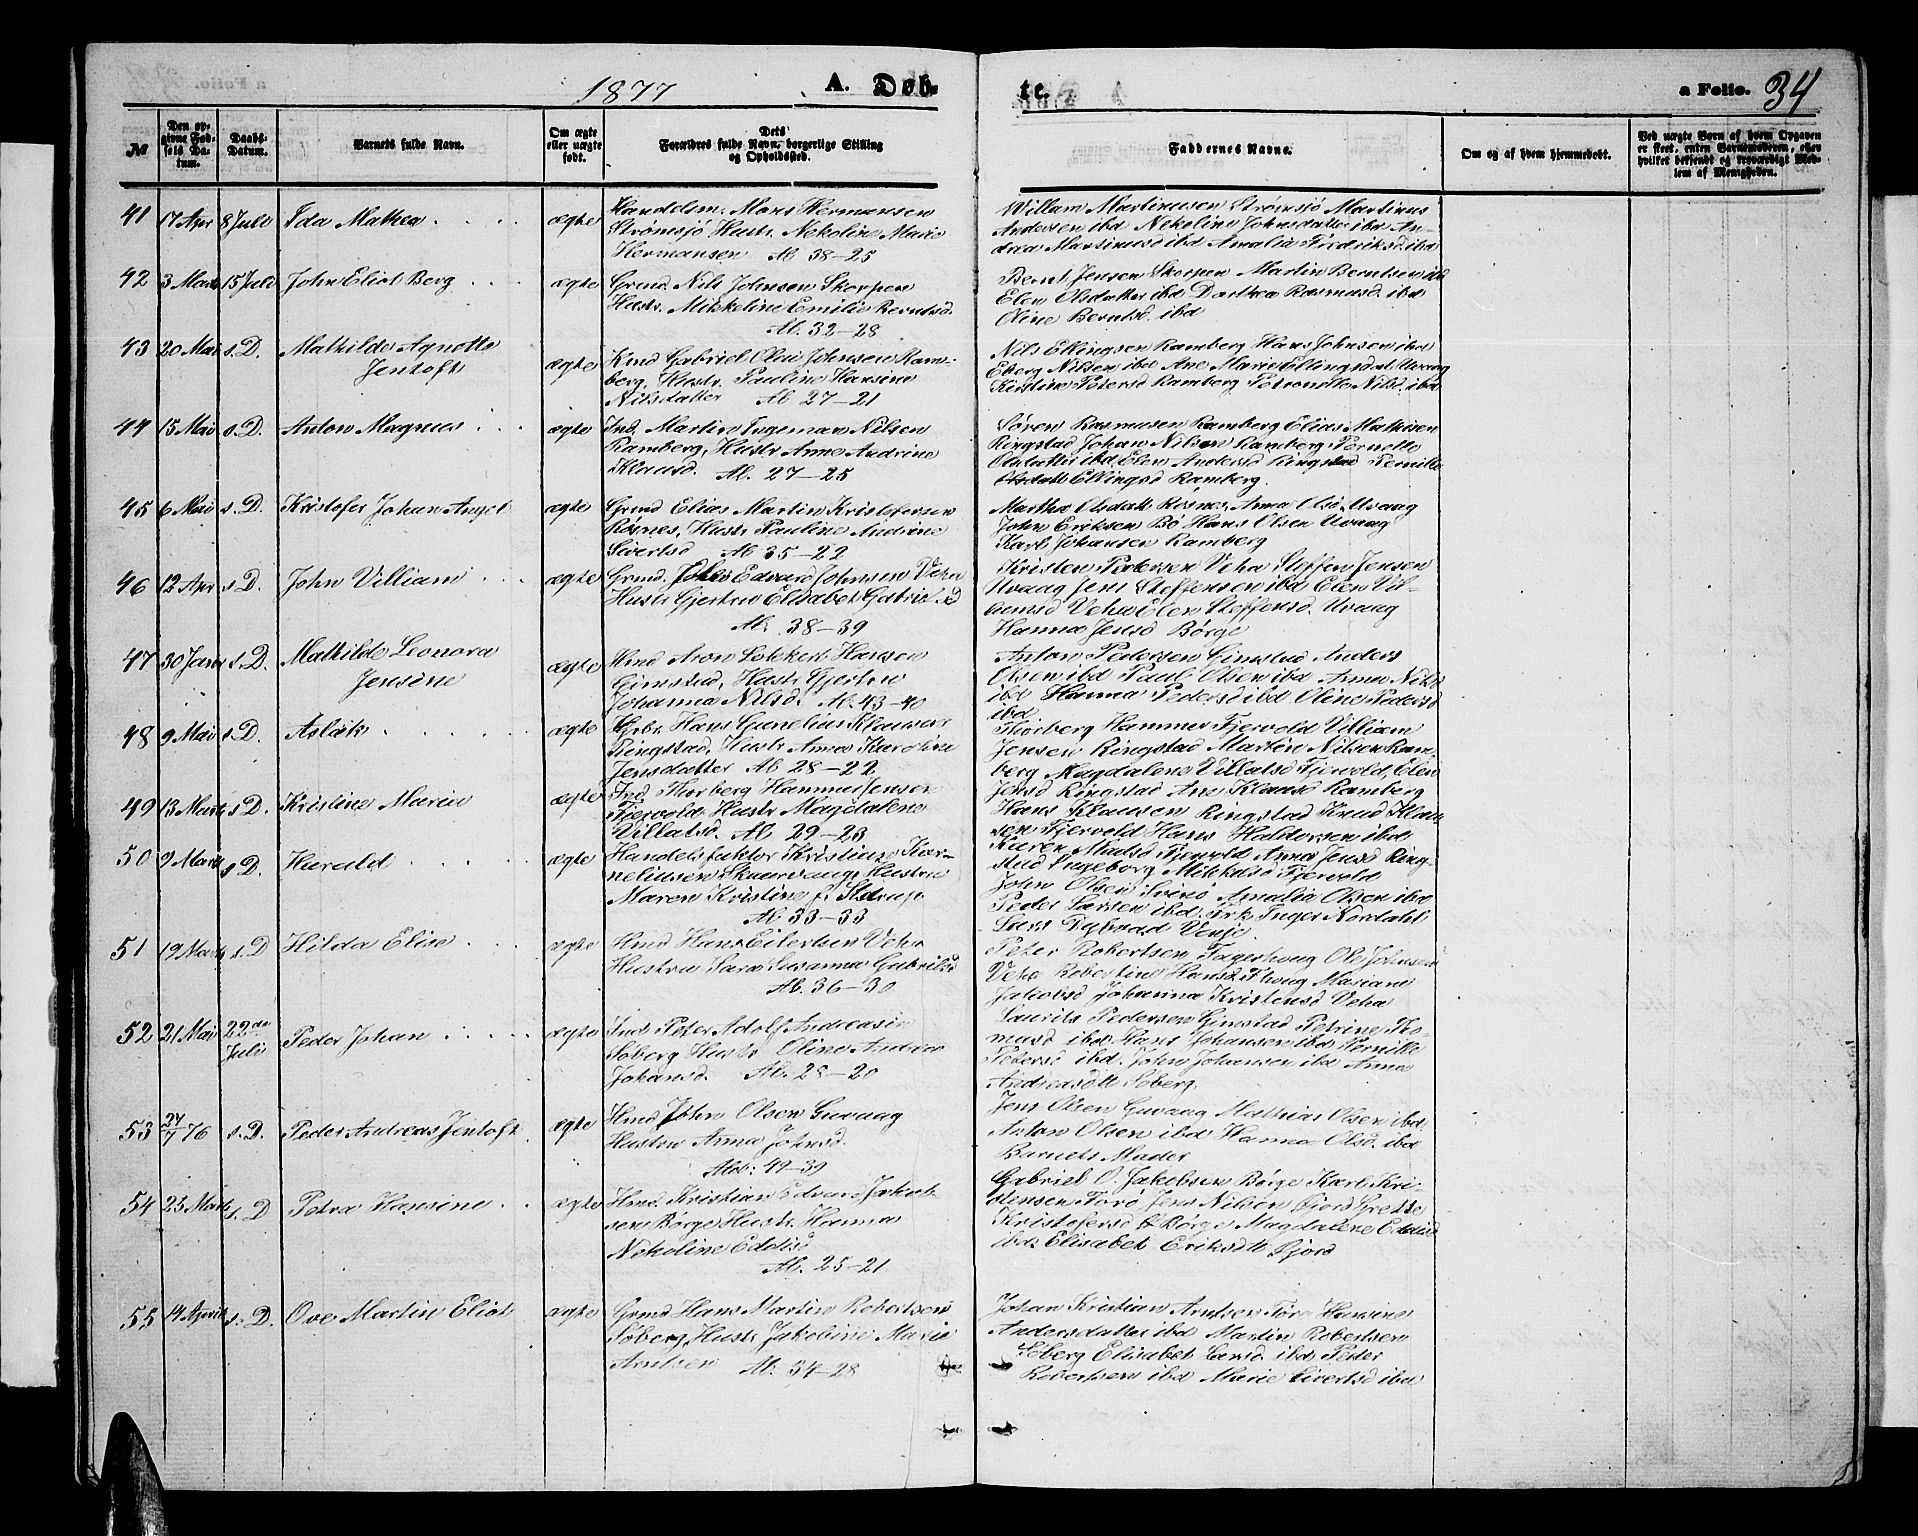 1877 A. Døb-
te.
a Folio. 34
№
Den opgivne Fødsels Datum.
Daabs-Datum.
Barnets fulde Navn.
Om ægte eller uægte født.
Dets Forældres fulde Navn, borgerlige Stilling og Opholdsted.
Faddernes Navne.
Om og af hvem hjemmedøbt.
Ved uægte Børn af hvem Opgaven er skeet, enten Barnemoderen, eller hvilket bekjendt og troværdigt Medlem af Menigheden.
41 17 Apr 8 Juli Ida Mathea ægte Handelsm. Mons Hermansen
Strömsjö Hustr. Nekoline Marie
Hermansen Al. 38–25
Willam Martinusen Strömsjö Martinus
Andersen ibd Nikoline Johnsdatter ibd An-
drea Martinusd ibd Amalia Fredriksd. ibd
42 3 Marts 15 Juli John Eliot Berg ægte Grmd. Nils Johnsen Skorpen
Hustr. Mikkeline Emilie Berntsd.
Al. 32–28
Bernt Jensen Skorpen Martin Berntsen ibd
Elen Olsdatter ibd Dorthea Rasmusd. ibd
Oline Berntsd. ibd
43 20 Mai s. D. Mathilde Agnette
Jentoft ægte Kmd Gabriel Olai Johnsen Ram-
berg, Hustr. Pauline Hansine
Nilsdatter Al 27–21
Nils Ellingsen Ramberg Hans Johnsen ibd
Edberg Nilsen ibd Ane Marie Ellingsdat Uvaag
Kirstine Petersd Ramberg Petronelle Nilsd. ibd
44 15 Mai s. D. Anton Magnus ægte Ind. Martin Ingeman Nilsen
Ramberg, Hustr Anne Andrine
Klausd. Al. 27–25
Sören Rasmusen Ramberg Elias Mathisen
Ringstad Johan Nilsen Ramberg Pernelle
Olsdatter ibd. Elen Andersd Ringstad Pernille
Ellingsd Ramberg.
45 6 Mai s. D. Kristofer Johan Angel ægte Grmd Elias Martin Kristofersen
Rösnes, Hustr Pauline Andrine
Sivertsd Al 35–22
Martha Olsdatt Rösnes, Anna Olsd. Uvaag
John Eriksen Bö Hans Olsen Uvaag
Karl Johansen Ramberg
46 12 Apr s. D. John Villiam ægte Grmd. John Edvard Johnsen Veha
Hustr Gjertru Elisabet Gabrielsd
Al. 38–39
Kristen Pedersen Veha Steffen Jensen
Uvaag Jens Steffensen ibd Elen Vil-
iamsd Veha Elen Steffensd. Uvaag
Hanna Jensd Börge
47 30 Janr s. D. Mathilde Leonora
Jensine ægte Hmd Aron Lokkert Hansen
Gimstad, Hustr. Gjertru
Johanna Nilsd. Al. 43–40
Anton Pedersen Gimstad Anders
Olsen ibd Paul Olsen ibd Anna Nilsd
ibd Hanna Pedersd ibd Oline Pedersd
ibd
48 9 Mai s. D. Aslak ægte Grbr. Hans Cornelius Klausen
Ringstad, Hustr Anna Karoline
Jensdatter Al 28–22
Thorberg Hammer Fjervold Villiam
Jensen Ringstad Martin Nilsen Ram-
berg Magdalene Villatsd Fjervold, Elen
Jensd Ringstad Ane Klausd Ramberg
49 13 Marts s. D. Kristine Maria ægte Ind. Thorberg Hammer Jensen
Fjervold Hustr Magdalene
Villatsd. Al 29–23
Hans Klausen Ringstad Knud Klau-
sen Fjervold Hans Haldorsen ibd
Karen Madsd Fjervold Anna Jensd Ring-
stad Ingeborg Mikkelsd Fjervold
50 9 Marts s D. Harald ægte Handelsfaktor Kristian Kor-
neliusen Skaarvaag, Hustru
Maren Kristine f. Stdrup
Al 33–33
John Olsen Svinö Amalia Olsen ibd
Peder Larsen ibd. Frk. Inger Nordahl
Lars Fybrad Venje.
51 19 Marts s D Hilda Elise ægte Hmd Hans Eilertsen Veha
Hustru Sara Susanna Gabrilsd
Al. 36–30
Peter Robertsen Fagerhoug Ole Johnsen
Veha Robertine Hansd F.houg Mariane
Jakobsd Johanna Kristensd Veha
52 21 Mai 22de
Juli Peder Johan ægte Ind. Peter Adolf Andreasen
Söberg Hustr. Oline Andrea
Johansd. Al. 28–20
Laurits Pedersen Gimstad Petrine To-
masd ibd Hans Johansen ibd Pernille
Petersd ibd. John Johansen ibd Anna
Andreasdtt Söberg.
53 27/7 76 s. D. Peder Andreas Jentoft ægte Hmd John Olsen Guvaag
Hustru Anna Johnsd.
Ald: 49–39
Jens Olsen Guvaag Mathias Olsen ibd.
Anton Olsen ibd Hanna Olsd. ibd
Barnets Moder
54 23 Marts s. D Petra Hansine ægte Hmd. Kristian Edvard Jakob-
sen Börge Hustr. Hanna
Nekoline Eddisd
Al. 25–21
Gabriel O. Jakobsen Börge Karl Kri-
stensen Forö Jens Nilsen Öjord Grette
Kristofersd Börge Magdalene Eddisd
ibd. Elisabet Eriksdtt Öjord
55 14 April s. D. Ove Martin Eliot ægte Grmd Hans Martin Robertsen
Söberg, Hustr Jakoline Marie
Arntsen Al. 34–28
Johan Kristian Arntsen Förö Hansine
Andersdatter ibd Martin Robertsen
Söberg Elisabet Larsd ibd Peder
Robertsen ibd Marie Sivertsd ibd